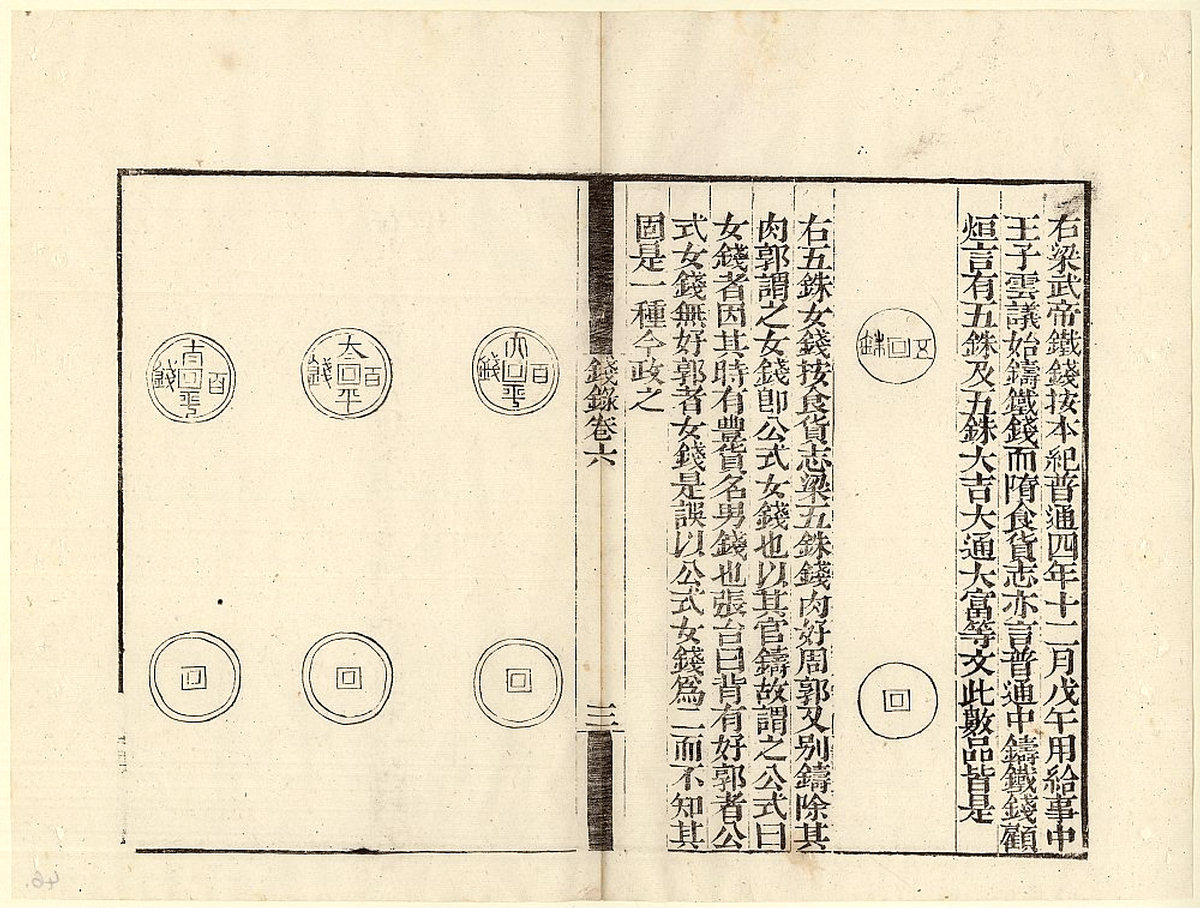 右梁武帝鐵錢按本紀普通四年十二月戊午用給事中
王子雲議始鑄鐵錢而隋食貨志亦言普通中鑄鐵錢顧
烜言有五銖及五銖大吉大通大富等文此數品皆是
五銖
右五銖女錢按食貨志梁五銖錢肉好周郭又别鑄除其
肉郭謂之女錢卽公式女錢也以其官鑄故謂之公式曰
女錢者因其時有豐貨名男錢也張台曰背有好郭者公
式女錢無好郭者女錢是誤以公式女錢爲二而不知其
固是一種今政之
錢錄卷六
三
大平百錢
太平百錢
平百錢
46.